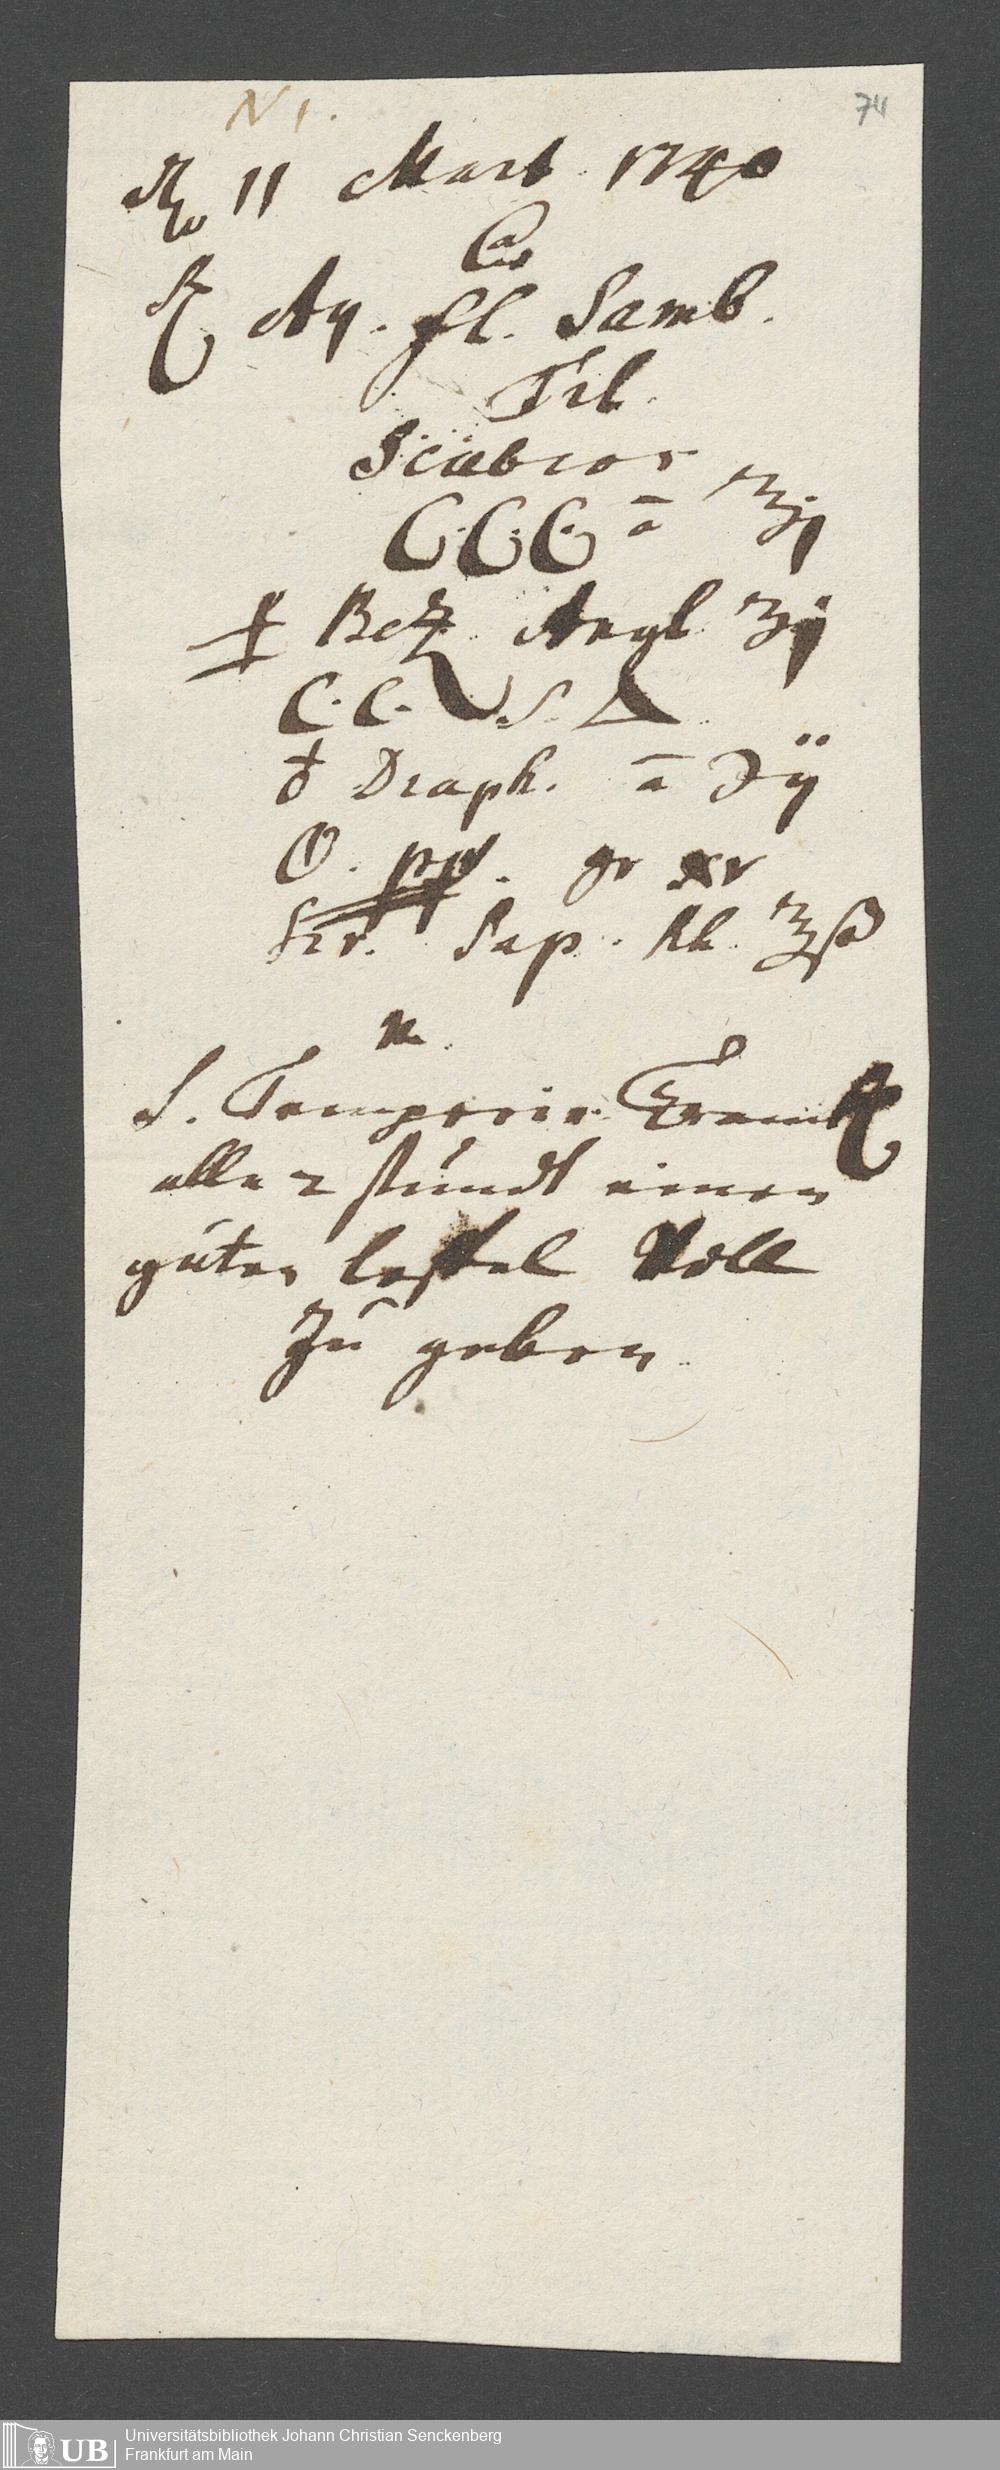 N 1.
74
11 Mart. 1740
℞ Aq. fl. Samb.
Til.
Scabios
C.C.C. ā ℥j
Angl ʒij
C.C. S. △
♁ Diaph. ā ℈ij
gr xv
Sir. Pap. Rh. ℥ß
M.
S. Temperir Tranck
alle 2 stundt einen
guten leffel Voll
Zu geben
UB
Universitätsbibliothek Johann Christian Senckenberg
Frankfurt am Main